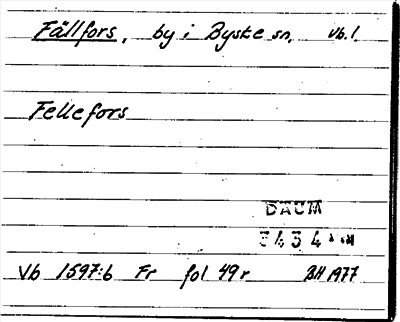 Fällfors, by i Byske sn. Vb. l.
Fellefors
DAUM
3434
Vb 1597:6 Fr fol 49r BH 1977